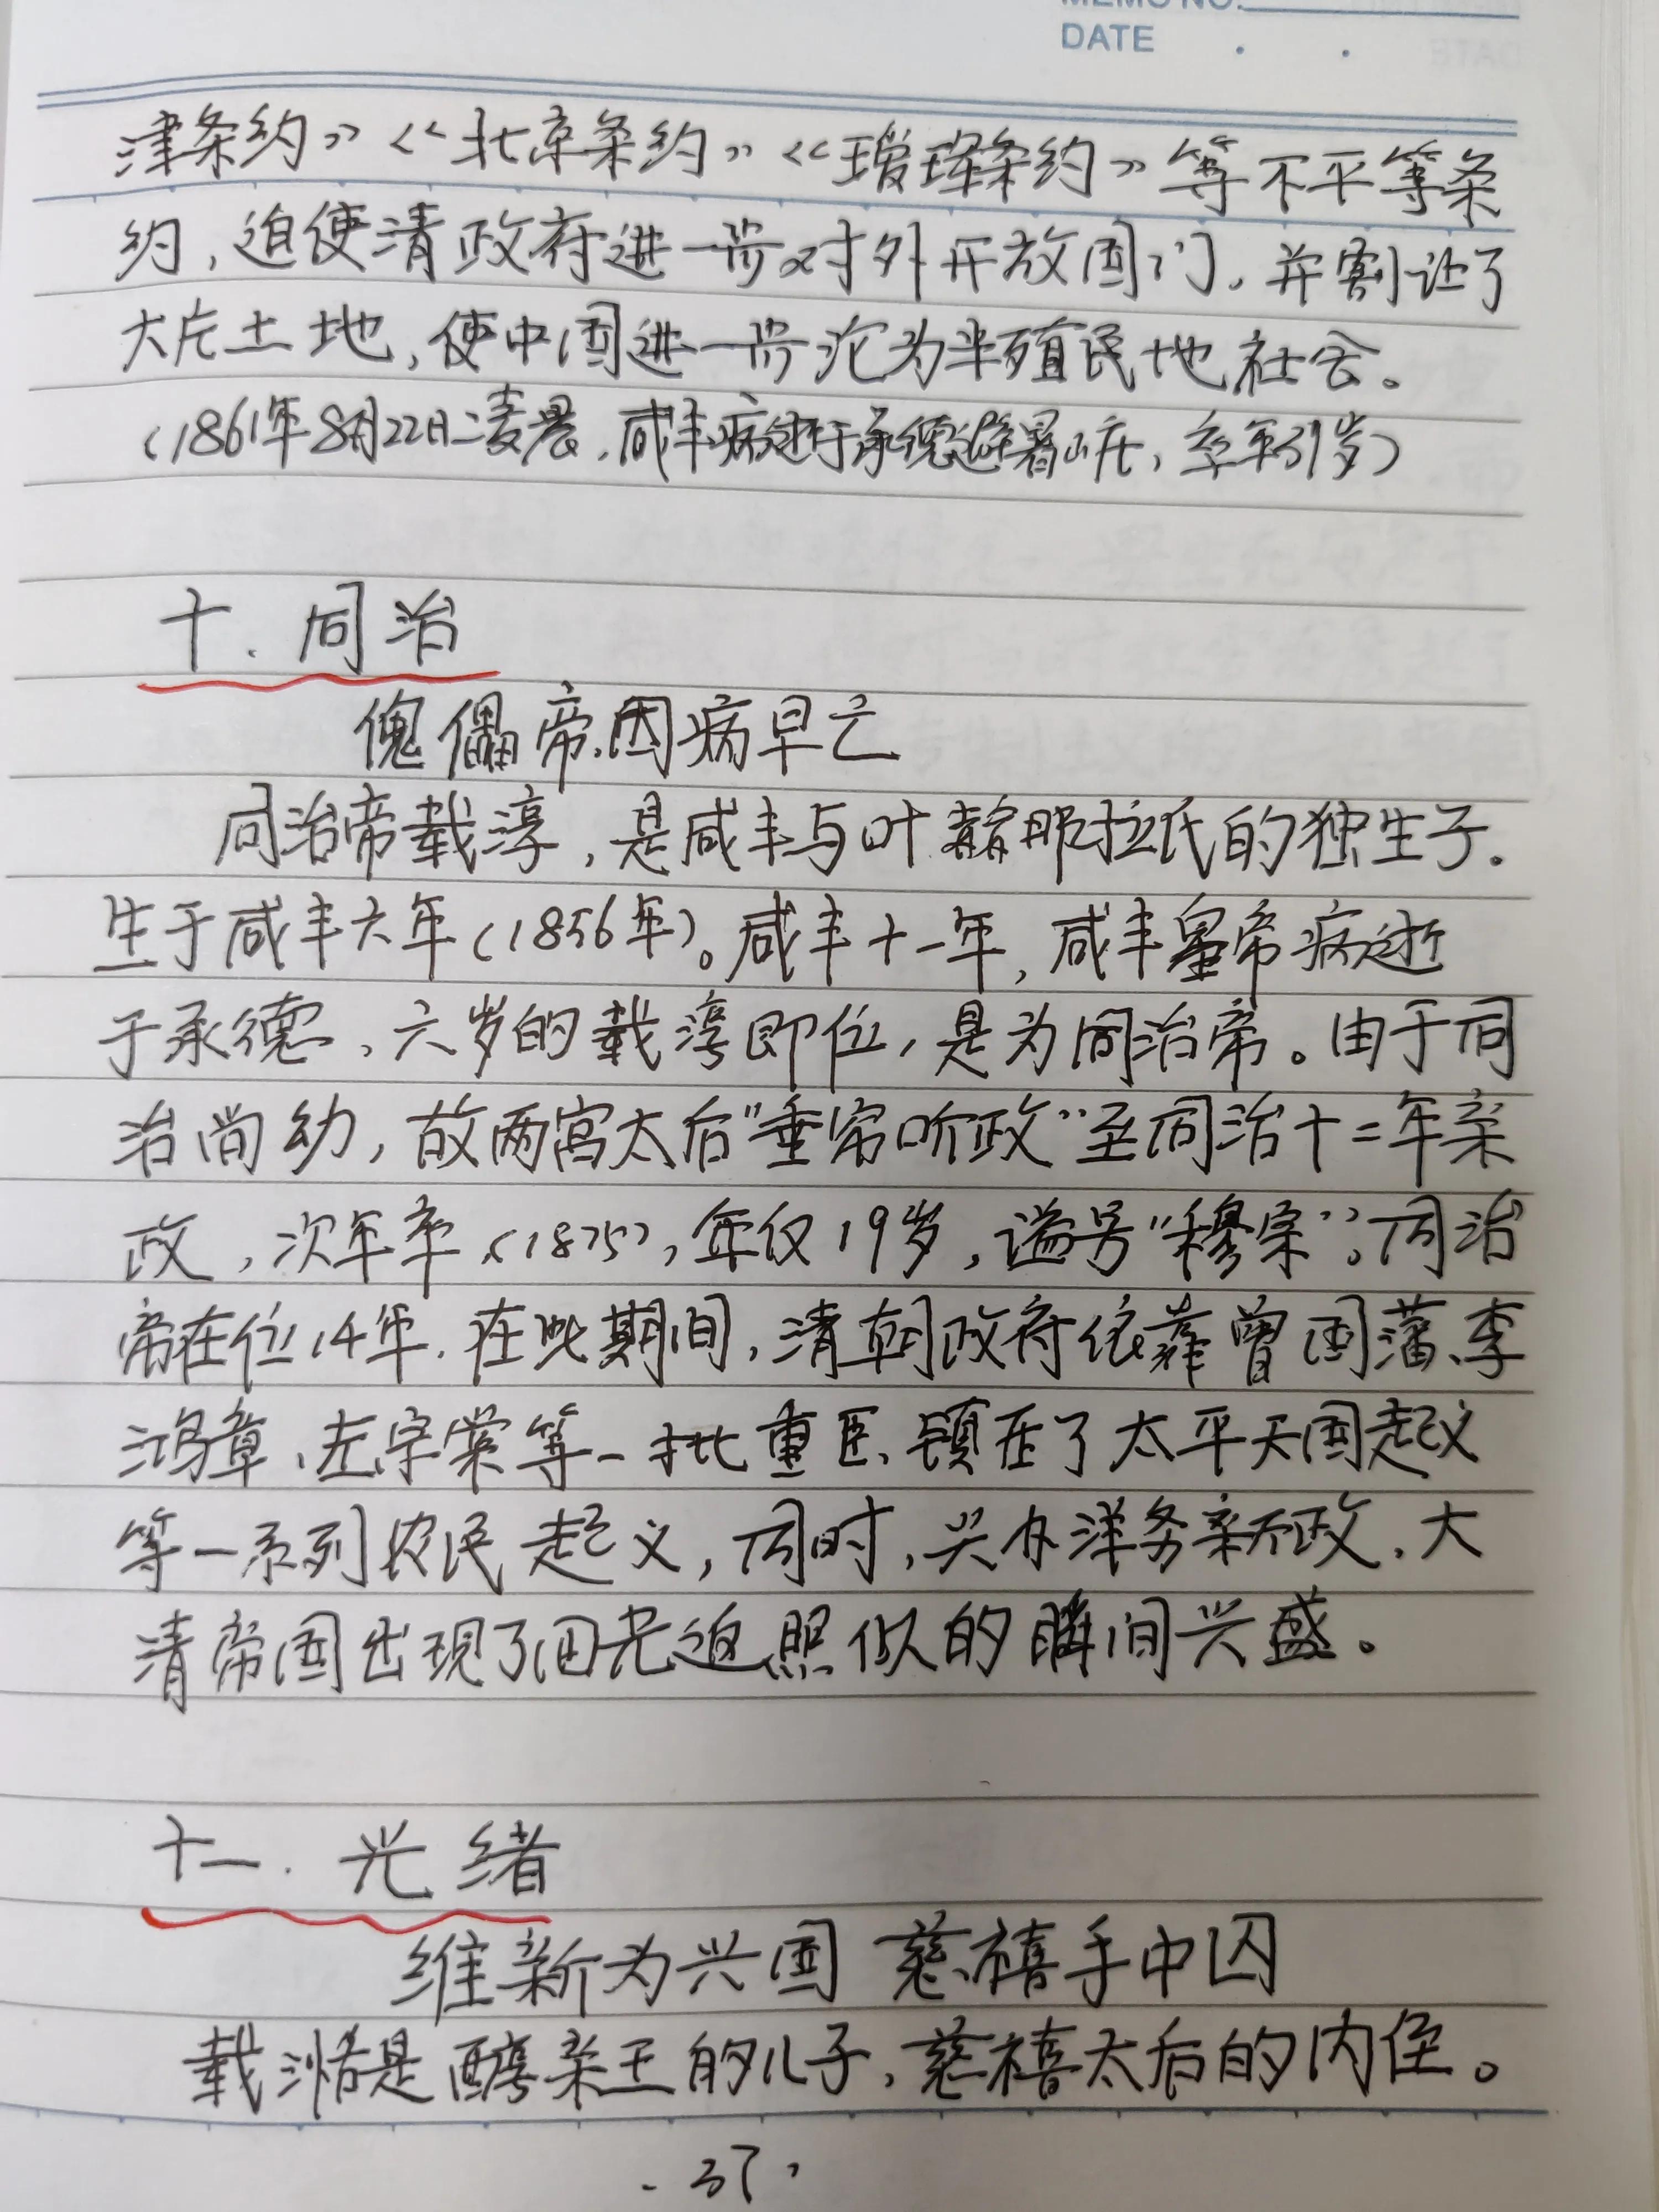 DATE
津条约》《北京条约》《瑷珲条约》等不平等条
约,迫使清政府进一步对外开放国门,并割让了
大片土地,使中国进一步沦为半殖民地社会。
(1861年8月22日凌晨,咸丰病逝于承德避暑山庄,卒年31岁)
十.同治
傀儡帝.因病早亡
同治帝载淳,是咸丰与叶赫那拉氏的独生子。
生于咸丰六年(1856年)。咸丰十一年,咸丰皇帝病逝
于承德、六岁的载淳即位,是为同治帝。由于同
治尚幼,故两宫太后"垂帘听政"至同治十二年亲
政,次年卒(1875),年仅19岁,谥号"穆宗";同治
帝在位14年.在此期间,清朝政府依靠曾国藩、李
鸿章、左宗棠等一批重臣、镇压了太平天国起义
等一系列农民起义,同时,兴办洋务新政,大
清帝国出现了回光返照似的瞬间兴盛。
十一.光绪
维新为兴国 慈禧手中囚
载湉是醇亲王的儿子,慈禧太后的内侄。
.37,